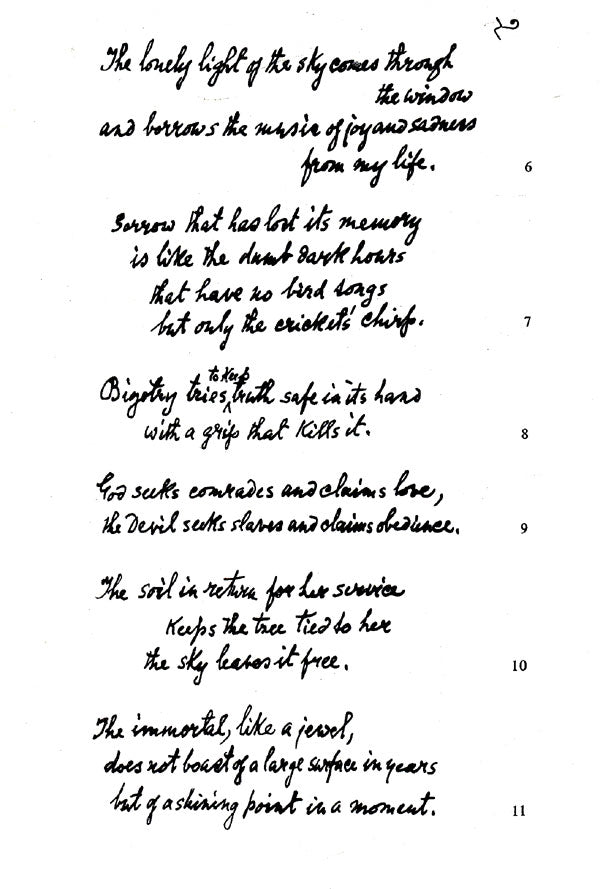 The lonely light of the sky comes through
the window
and borrows the music of joy and sadness
from my life.
6
Sorrow that has lost its memory
is like the dumb dark hours
that have no bird songs
but only the crickets' chirp.
7
Bigotry tries to keep truth safe in its hand
with a grip that kills it.
8
God seeks comrades and claims love,
the Devil seeks slaves and claims obedience.
9
The soil in return for her service
keeps the tree tied to her
the sky leaves it free.
10
The immortal, like a jewel,
does not boast of a large surface in years
but of a shining point in a moment.
11